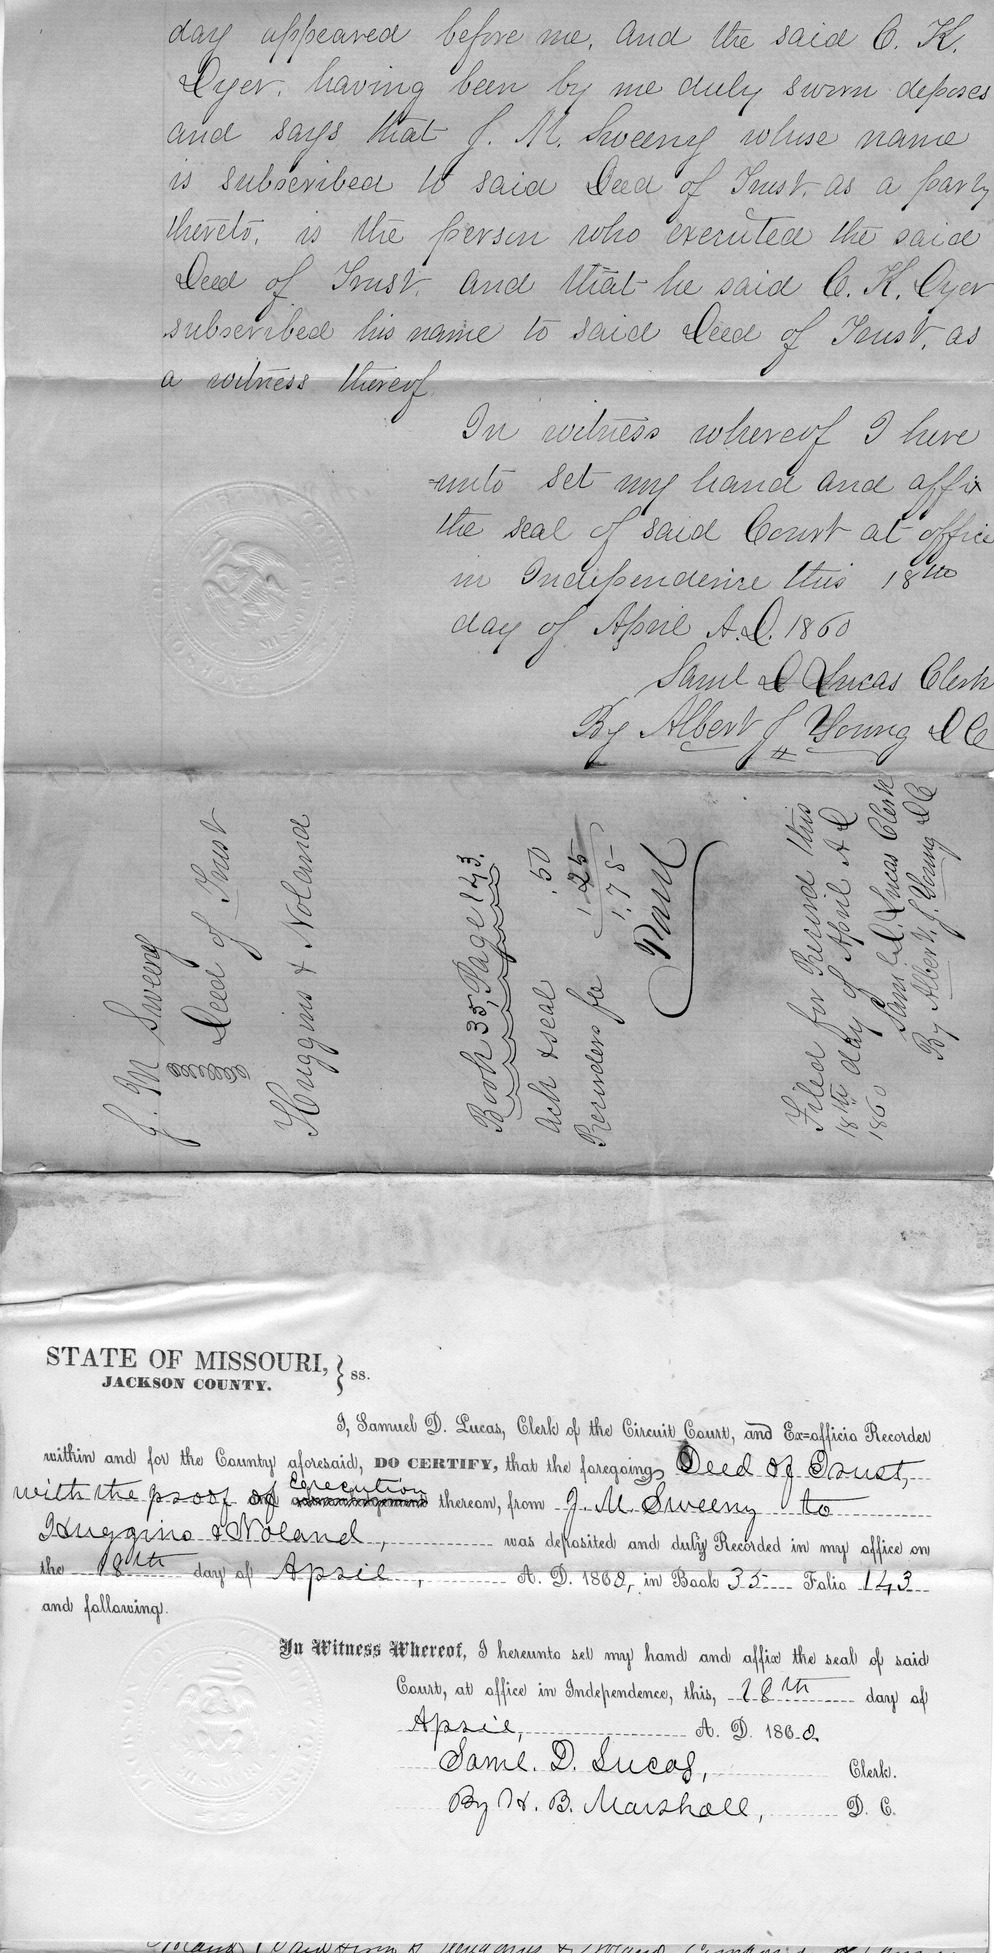 day appeared before me, and the said C. K.
Dyer, having been by me duly sworn deposes
and says that J. M. Sweeny whose name
is subscribed to said Deed of Trust, as a party
thereto, is the person who executed the said
Deed of Trust, and that he said C. K. Dyer
subscribed his name to said Deed of Trust, as
a witness thereof
In witness whereof I here
-unto set my hand and affix
the seal of said Court at office
in Independence this 18th
day of April A.D. 1860
Saml D Lucas Clerk
By Albert J Young DC
J. M Sweeny
Deed of Trust
Huggins & Noland
Book 35, Page 143.
Ack & seal .50
Recorders fee 1.25
1.75
Paid
Filed for Record this
18th day of April A D
1860 Saml D. Lucas Clerk
By Albert J. Young DC
STATE OF MISSOURI, } ss.
JACKSON COUNTY.
I, Samuel D. Lucas, Clerk of the Circuit Court, and Ex=officio Recorder
within and for the County aforesaid, DO CERTIFY, that the foregoing Deed of Trust,
with the proof of execution thereon, from J. M Sweeny to
Huggins & Noland, was deposited and duly Recorded in my office on
the 18th day of April, A. D. 1860, in Book 35 Folio 143
and following.
In Witness Whereof, I hereunto set my hand and affix the seal of said
Court, at office in Independence, this, 18th day of
April, A. D. 1860.
Saml. D. Lucas, Clerk.
By H. B. Marshall, D. C.